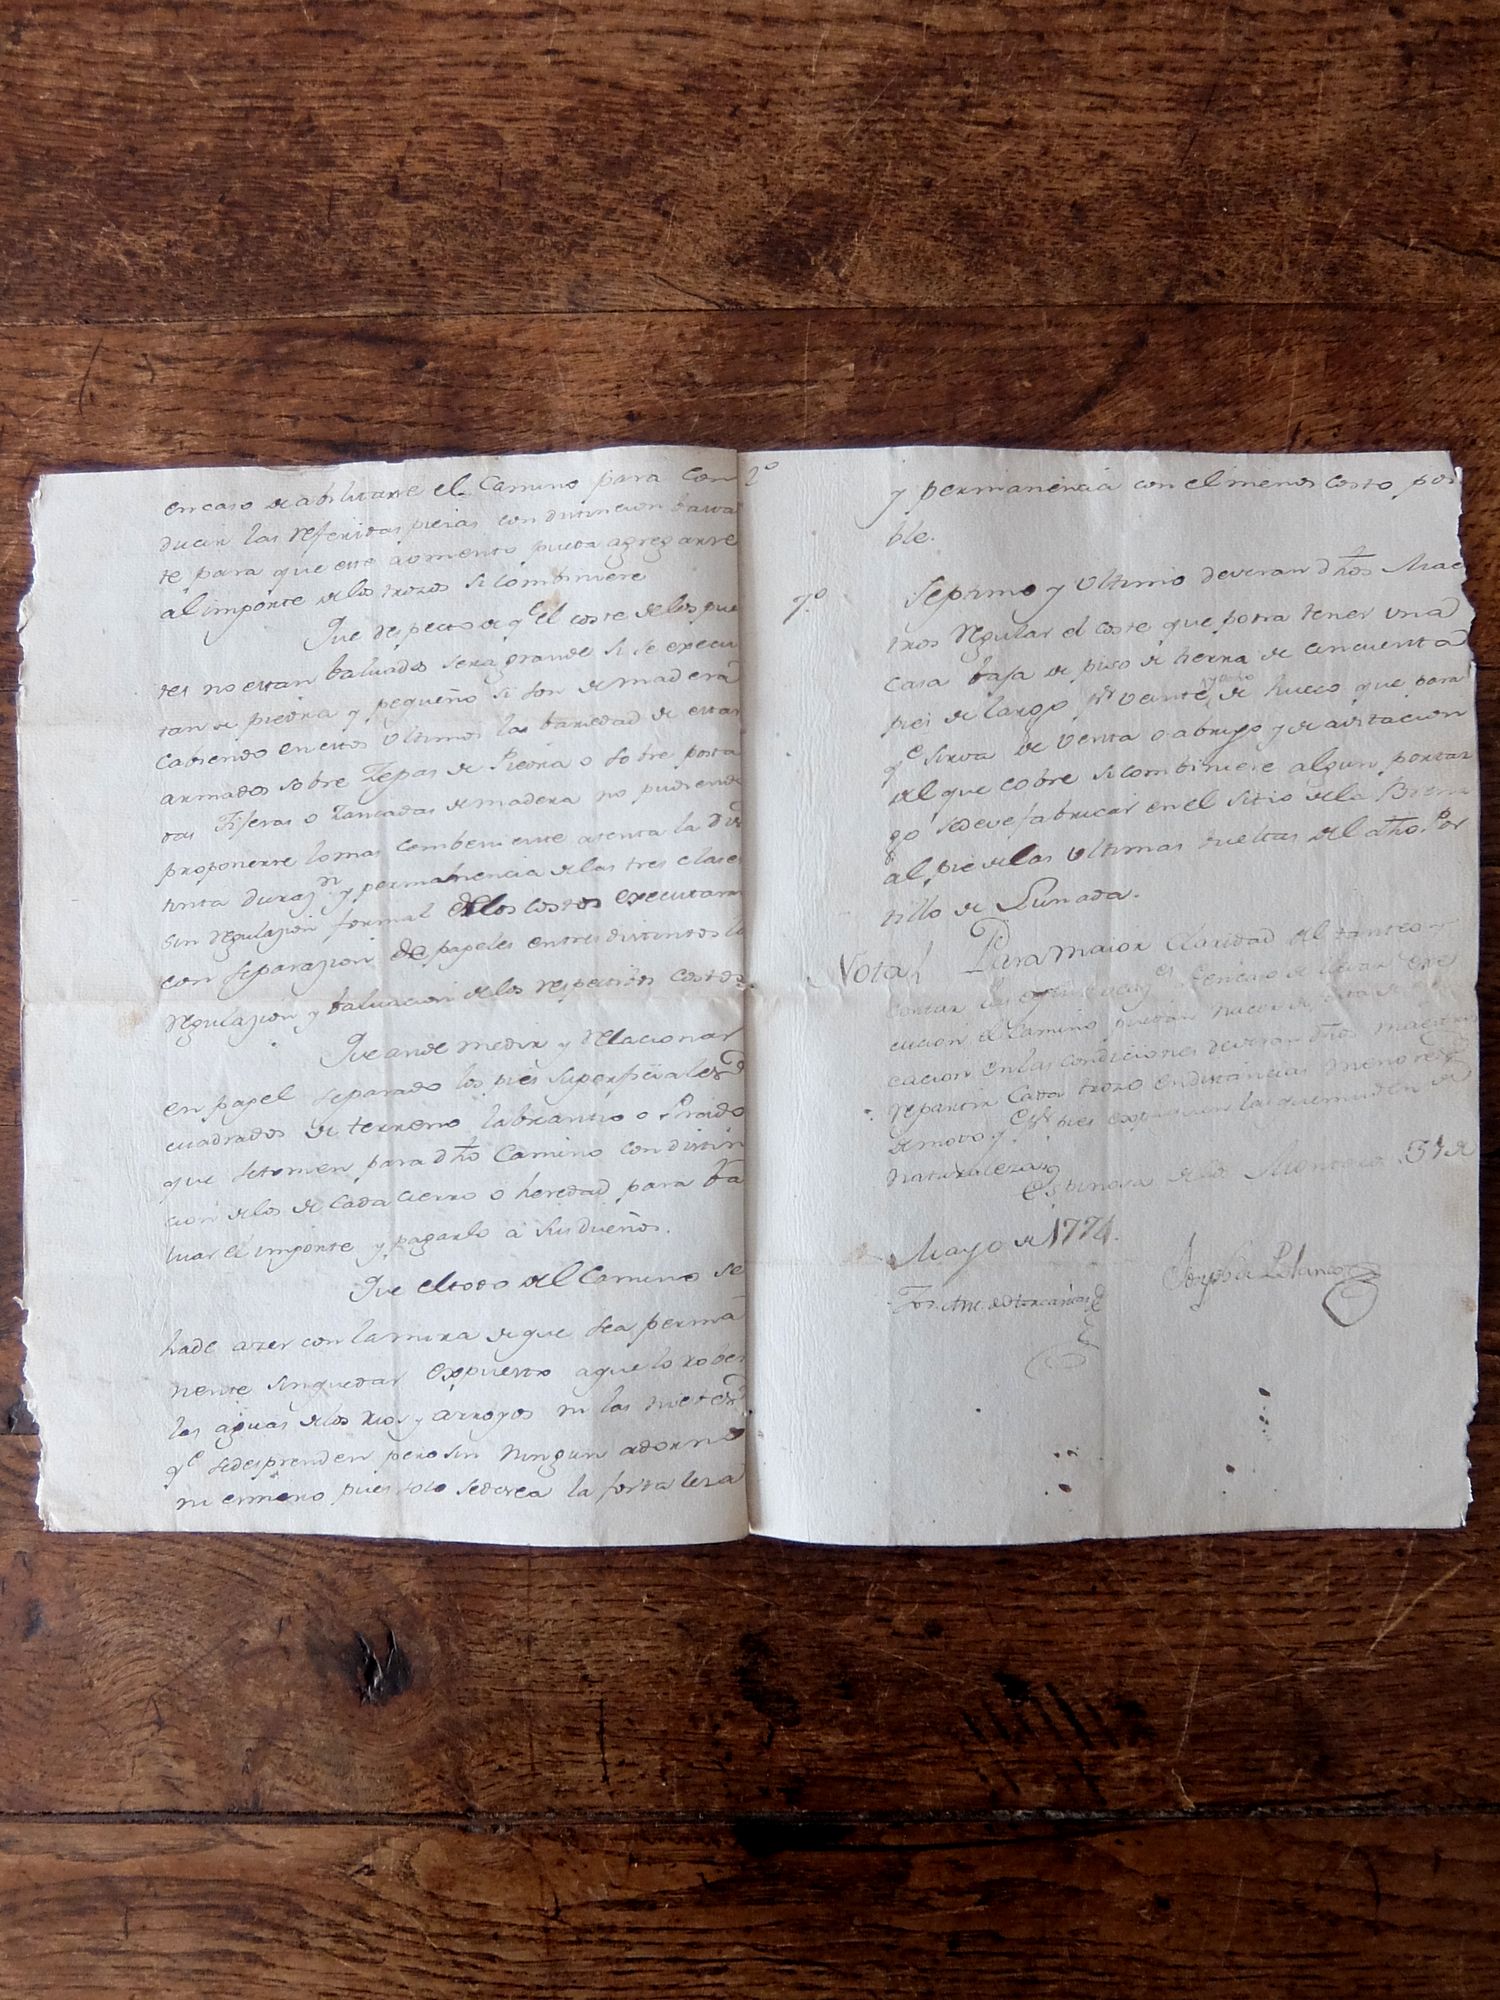 en caso de abilitarse el Camino para con
ducir las referidas piezas con distincion basta
te para que este aomento pueda agregarse
al importe de los trozos si combiniere
Que respecto de q.e el coste de los pue
tes no estan baluados sera grande si se execu
tan de piedra y pequeño si son de madera
cabiendo en estos ultimos la bariedad de estar
armados sobre Zepas de Piedra o sobre posta
das Tiseras o Zancadas de madera no pudiendo
proponerse lo mas combeniente atenta la dis
tinta duraz.n y permanencia de las tres clases
sin regulazion formal de los costos executaran
con separazion de papeles en tres distintos la
regulazion y baluacion de los respectibos costos
Que ande medir y relacionar
en papel separado los pies superficiales
cuadrados de terreno labrantio o Prado
que se tomen para dho Camino con distin
cion de los de cada cierro o heredad para ba
luar el importe y pagarlo a sus dueños.
Que el todo del Camino se
hade azer con la mira de que sea perma
nente sin quedar expuesto a que lo roben
las aguas de los rios y arroyos ni las nieves
q.e se desprenden pero sin ningun adorno
ni esmero pues solo se desea la fortaleza
2º
y permanencia con el menos costo posi
ble.
7.º
Septimo y Ultimo deveran dhos Mae
tros regular el coste que podra tener una
casa baja de piso de tierra de cincuenta
pies de largo y veinte y ocho de hueco que para
q.e sirva de venta o abrigo y de avitacion
del que cobre si combiniere algun portaz
go se deve fabricar en el sitio de la
al pie de las ultimas bueltas del dho Por
tillo de Lunada.
Nota
Para maior claridad del tanteo y
cortar las q.e en caso de llevarse a exe
cucion el Camino puedan nacer de
cacion en las condiciones deveran dhos maestros
repartir cada trozo en distancias menores
de modo q.e pies expliquen la que muden de
naturaleza
Espinosa de los Monteros 31 de
Mayo de 1774.
Joseph de Blanco